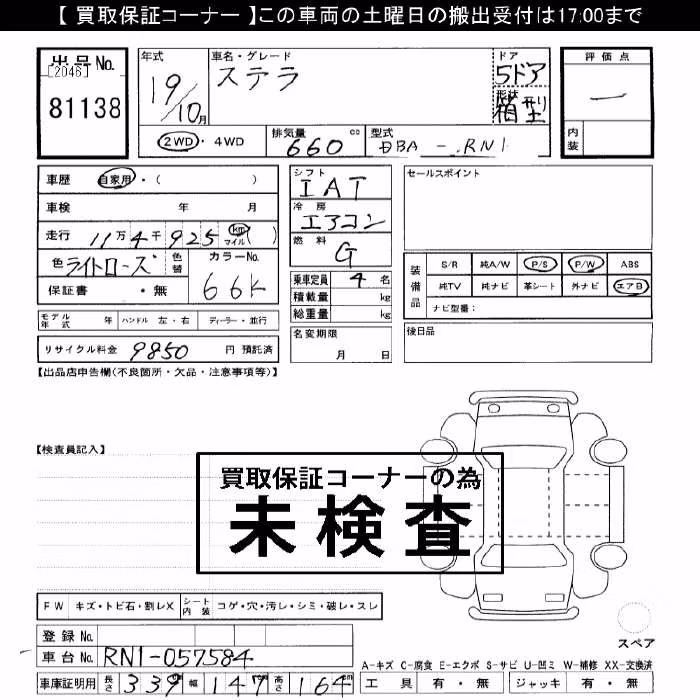 【 買取保証コーナー 】この車両の土曜日の搬出受付は17:00まで
出品No.
[2046]
81138
年式
19/10月
車名・グレード
ステラ
ドア
5ドア
形状
箱型
評価点
一
内装
2WD・4WD
排気量
660cc
型式
DBA-RN1
車歴 自家用・( )
車検 年 月
走行 11万4千925 km マイル( )
色 ライトローズ 色替
カラーNo.
66K
保証書 ・無
シフト
IAT
冷房
エアコン
燃料
G
乗車定員 4 名
積載量 kg
総重量 kg
セールスポイント
装備品
S/R 純A/W P/S P/W ABS
純TV 純ナビ 革シート 外ナビ エアB
ナビ型番:
モデル年式 年 ハンドル 左・右 ディーラー・並行
リサイクル料金 9850 円 預託済
名変期限
月 日
後日品
【出品店申告欄(不良箇所・欠品・注意事項等)】
【検査員記入】
買取保証コーナーの為
未検査
FW キズ・トビ石・割レX シート内装 コゲ・穴・汚レ・シミ・破レ・スレ
登録No.
車台No. RN1-057584
車庫証明用 長さ 339 幅 147 高さ 164 cm
スペア
A-キズ C-腐食 E-エクボ S-サビ U-凹ミ W-補修 XX-交換済
工具 有・無 ジャッキ 有・無